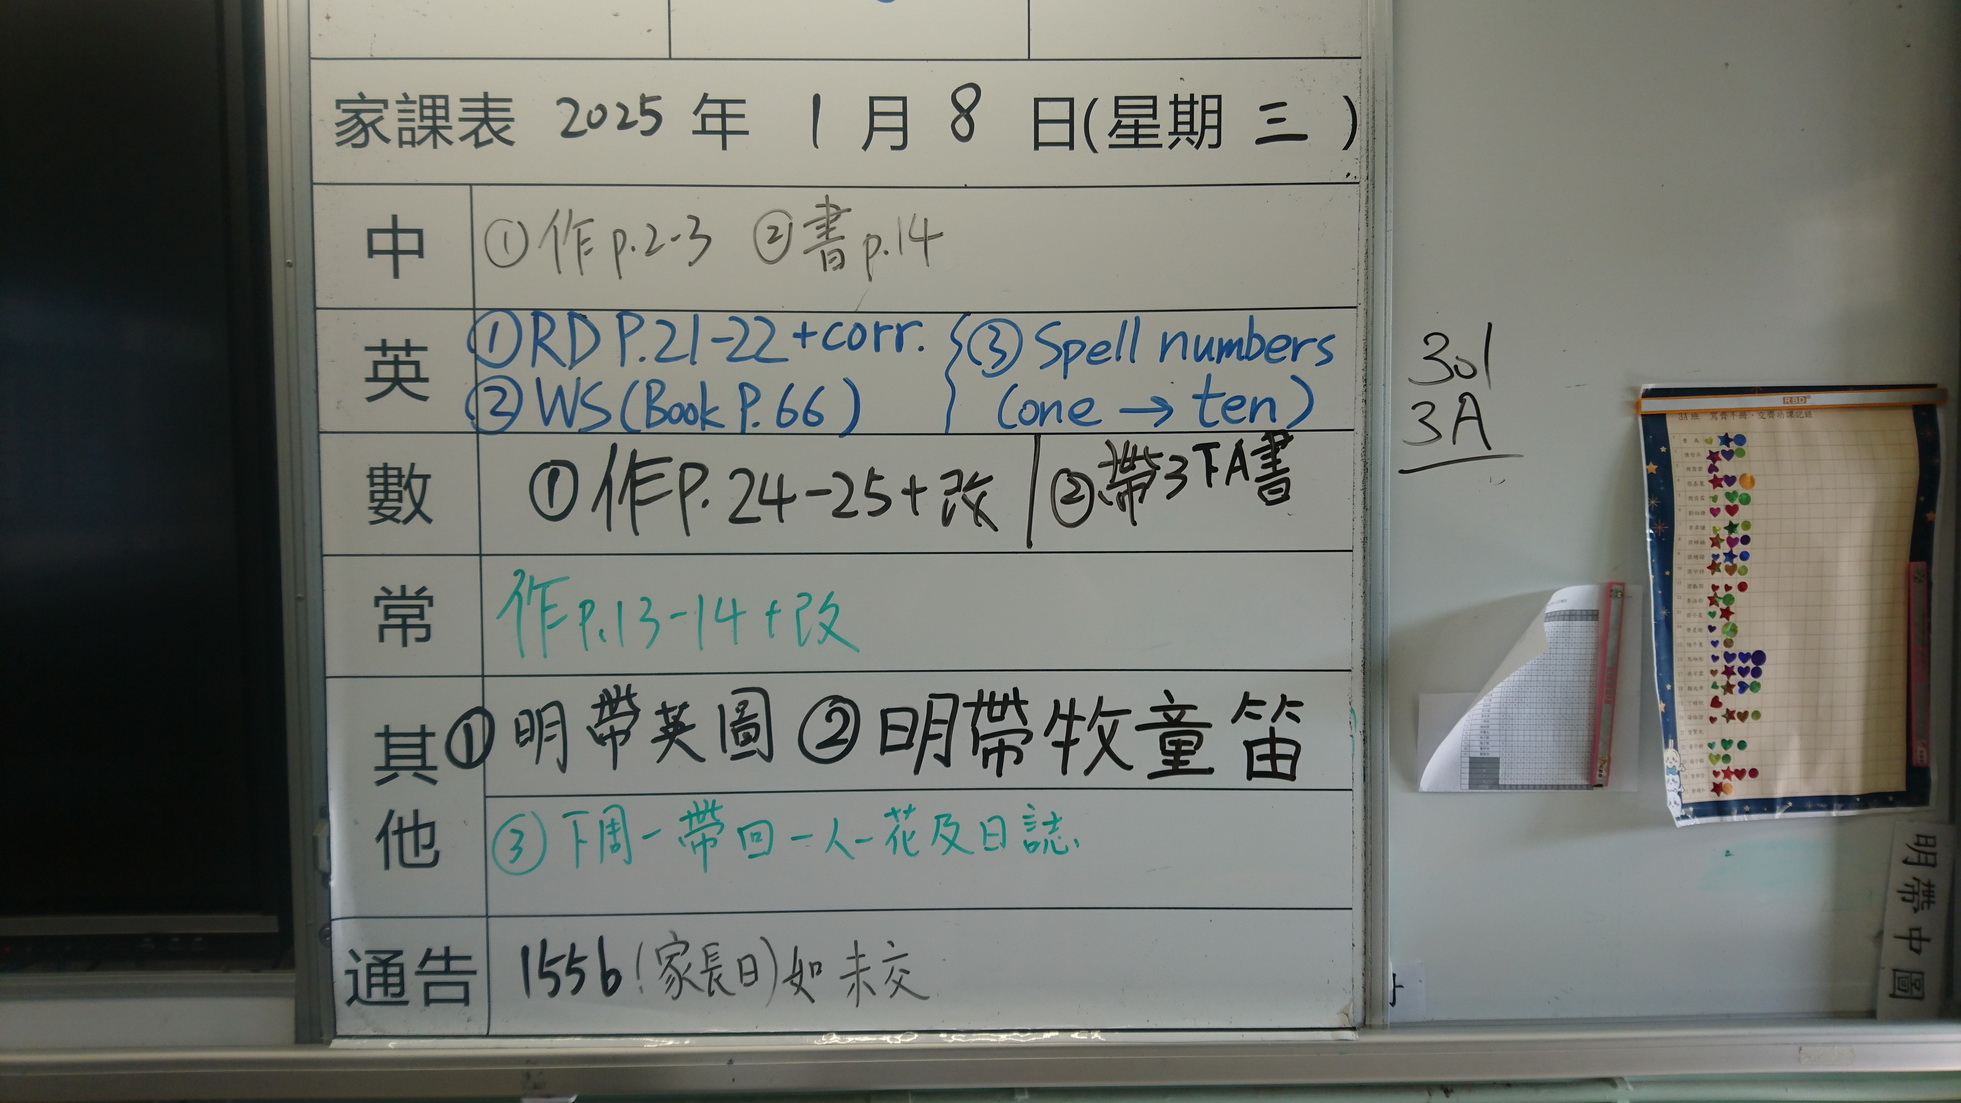 家課表 2025 年 1 月 8 日(星期 三 )
中 ①作p.2-3 ②書p.14
英 ①RD P.21-22+corr. ③Spell numbers
②WS(Book P.66) (one → ten)
數 ①作P.24-25+改 ②帶3下A書
常 作p.13-14+改
其他 ①明帶英圖 ②明帶牧童笛
③下周一帶回一人一花及日誌
通告 155b(家長日)如未交
301
3A
明帶中圖